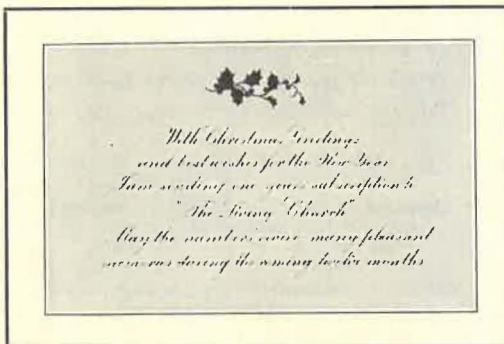 With Christmas Greetings
and best wishes for the New Year
I am sending one years subscription to
"The Living Church"
May the numbers many pleasant
during the coming twelve months